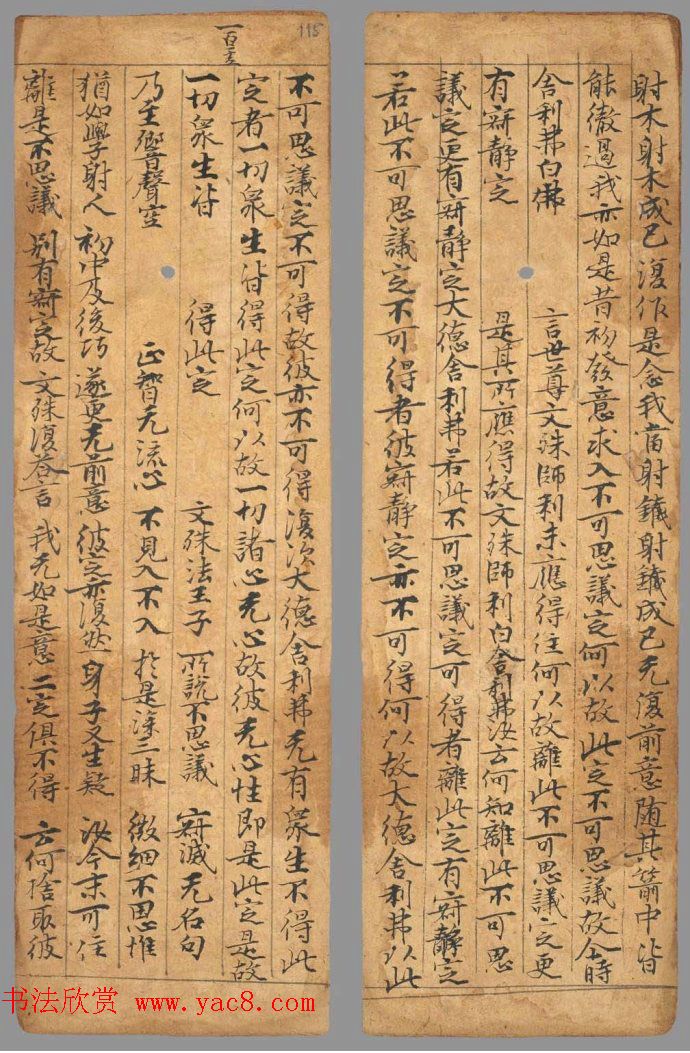 射木射木成已復作是念我當射鐵射鐵成已无復前意随其箭中皆
能徹過我亦如是昔初發意求入不可思議定何以故此定不可思議故尒時
舍利弗白佛 言世尊文殊師利未應得住何以故離此不可思議定更
有寂靜定 是其所應得故文殊師利白舍利弗汝云何知離此不可思
議定更有寂靜定大德舍利弗若此不可思議定可得者離此定有寂靜定
若此不可思議定不可得者彼寂靜定亦不可得何以故大德舍利弗以此
115
不可思議定不可得故彼亦不可得復次大德舍利弗无有衆生不得此
定者一切衆生皆得此定何以故一切諸心无心故彼无心性即是此定是故
一切衆生皆 得此定 文殊法王子 所說不思議 寂滅无名句
乃至響聲空 正智无流心 不見入不入 於是深三昧 微細不思惟
猶如學射人 初中及後巧 遂更无前意 彼定亦復然 身子又生疑 汝今未可住
離是不思議 別有寂定故 文殊復答言 我无如是意 二定俱不得 云何捨取彼
书法欣赏 www.yac8.com